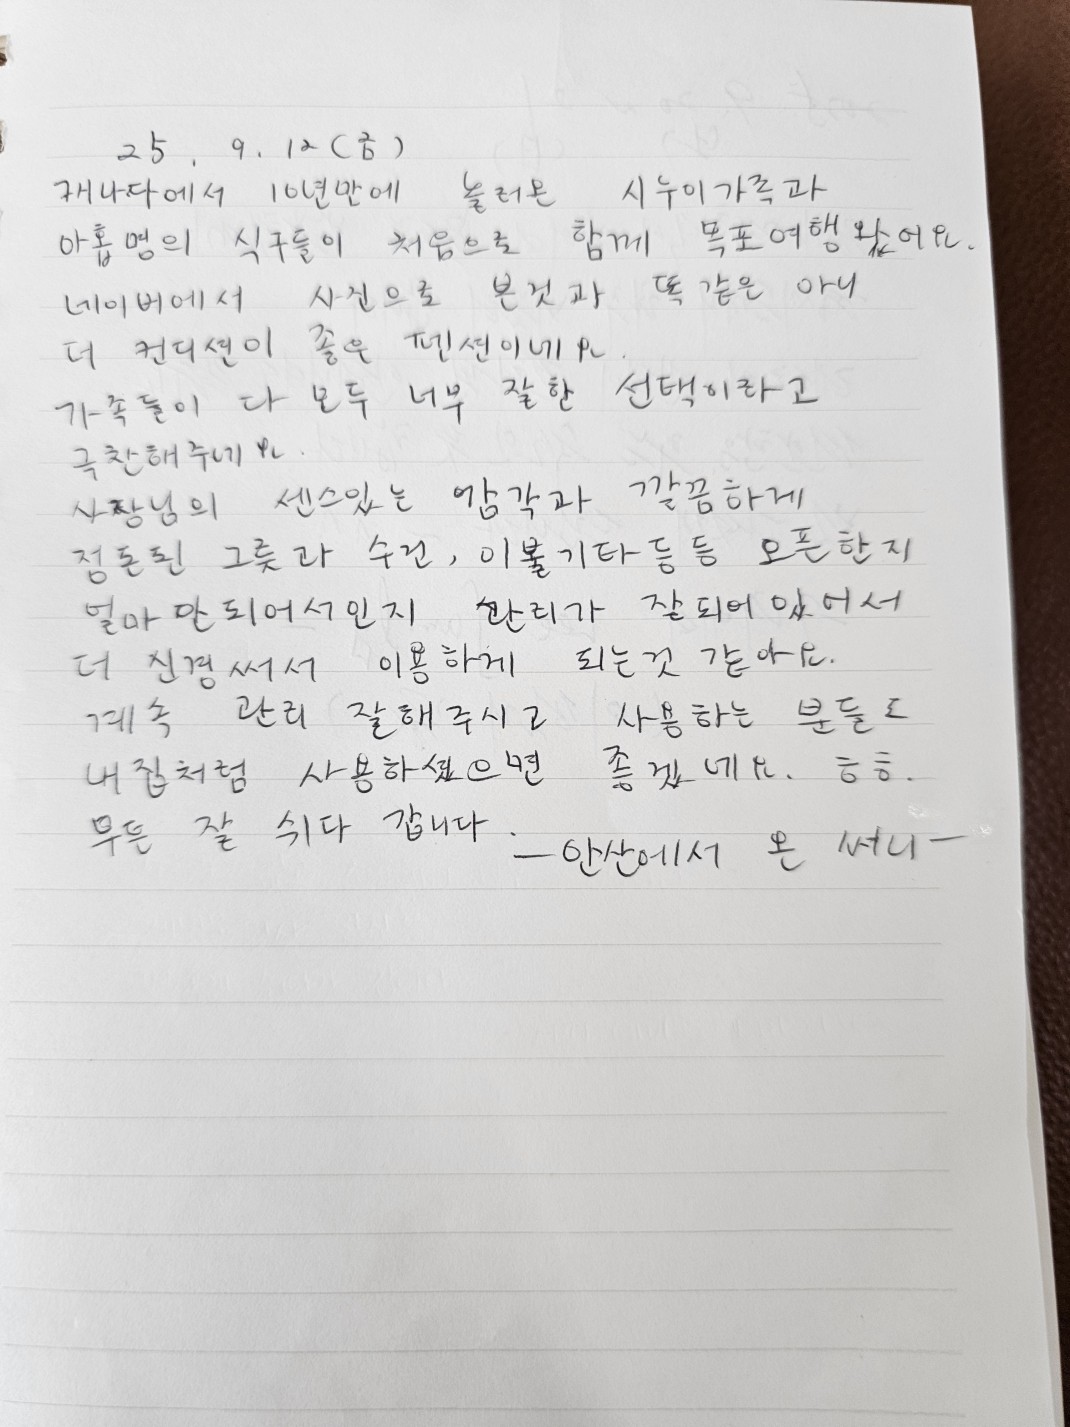 25. 9. 12(금)
캐나다에서 10년만에 놀러온 시누이가족과
아홉명의 식구들이 처음으로 함께 목포여행 왔어요.
네이버에서 사진으로 본것과 똑같은 아니
더 컨디션이 좋은 펜션이네요.
가족들이 다 모두 너무 잘한 선택이라고
극찬해주네요.
사장님의 센스있는 감각과 깔끔하게
정돈된 그릇과 수건, 이불기타등등 오픈한지
얼마안되어서인지 관리가 잘되어 있어서
더 신경써서 이용하게 되는것 같아요.
계속 관리 잘해주시고 사용하는 분들도
내집처럼 사용하셨으면 좋겠네요. ㅎㅎ.
무튼 잘 쉬다 갑니다.
-안산에서 온 써니-